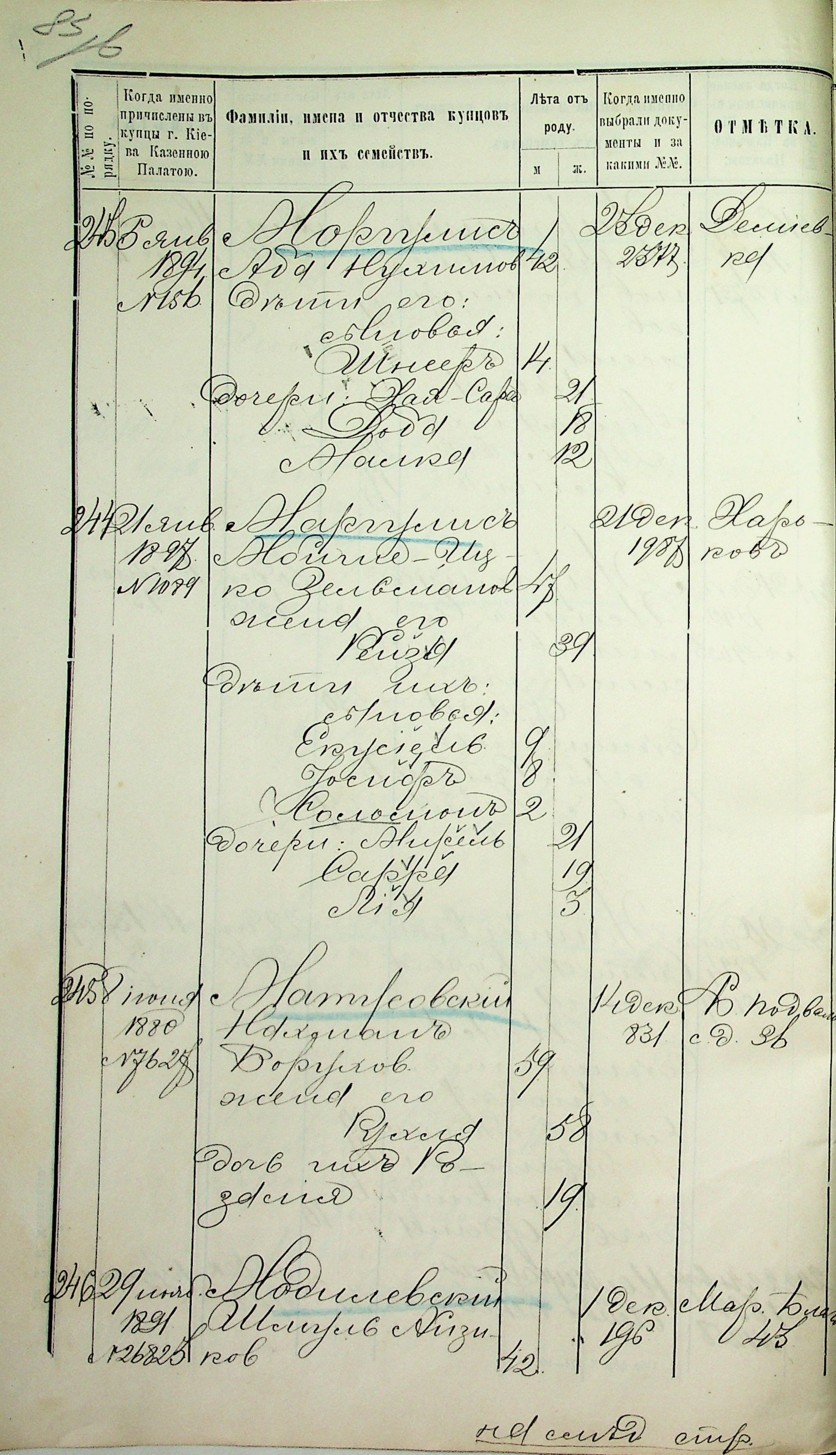 85/б
№№ по порядку.
Когда именно причислены въ купцы г. Кіева Казенною Палатою.
Фамиліи, имена и отчества купцовъ и ихъ семействъ.
Лѣта отъ роду.
м ж.
Когда именно выбрали документы и за какими №№.
ОТМѢТКА.
243 5 янв Моргулисъ 23 дек Демиев-
1894 Аба Нухимов 42 2377 ка
№156 Дѣти его:
сыновья:
Шнееръ 14
Дочери: Хая-Сара 21
Добa 18
Малка 12
244 21 янв Маргулисъ 21 дек Харь-
1897 Мойше-Иц- 1987 ковъ
№1089 ко Зельманов 47
жена его
Рейзя 39
Дѣти ихъ:
сыновья:
Екусіель 9
Іосифъ 8
Соломонъ 2
дочери: Мирель 21
Сарра 19
Лія 5
245 8 іюня Матусовскій 14 дек Б. Подваль
1880 Нахманъ 831 с. д. 36
№7627 Борухов 59
жена его
Рухля 58
Дочь ихъ Ро-
залия 19
246 29 Мобилевскій 1 дек. Мар. Благ
1891 Шмуль Айзи- 196 43
№26825 ков 42
на слѣд стр.